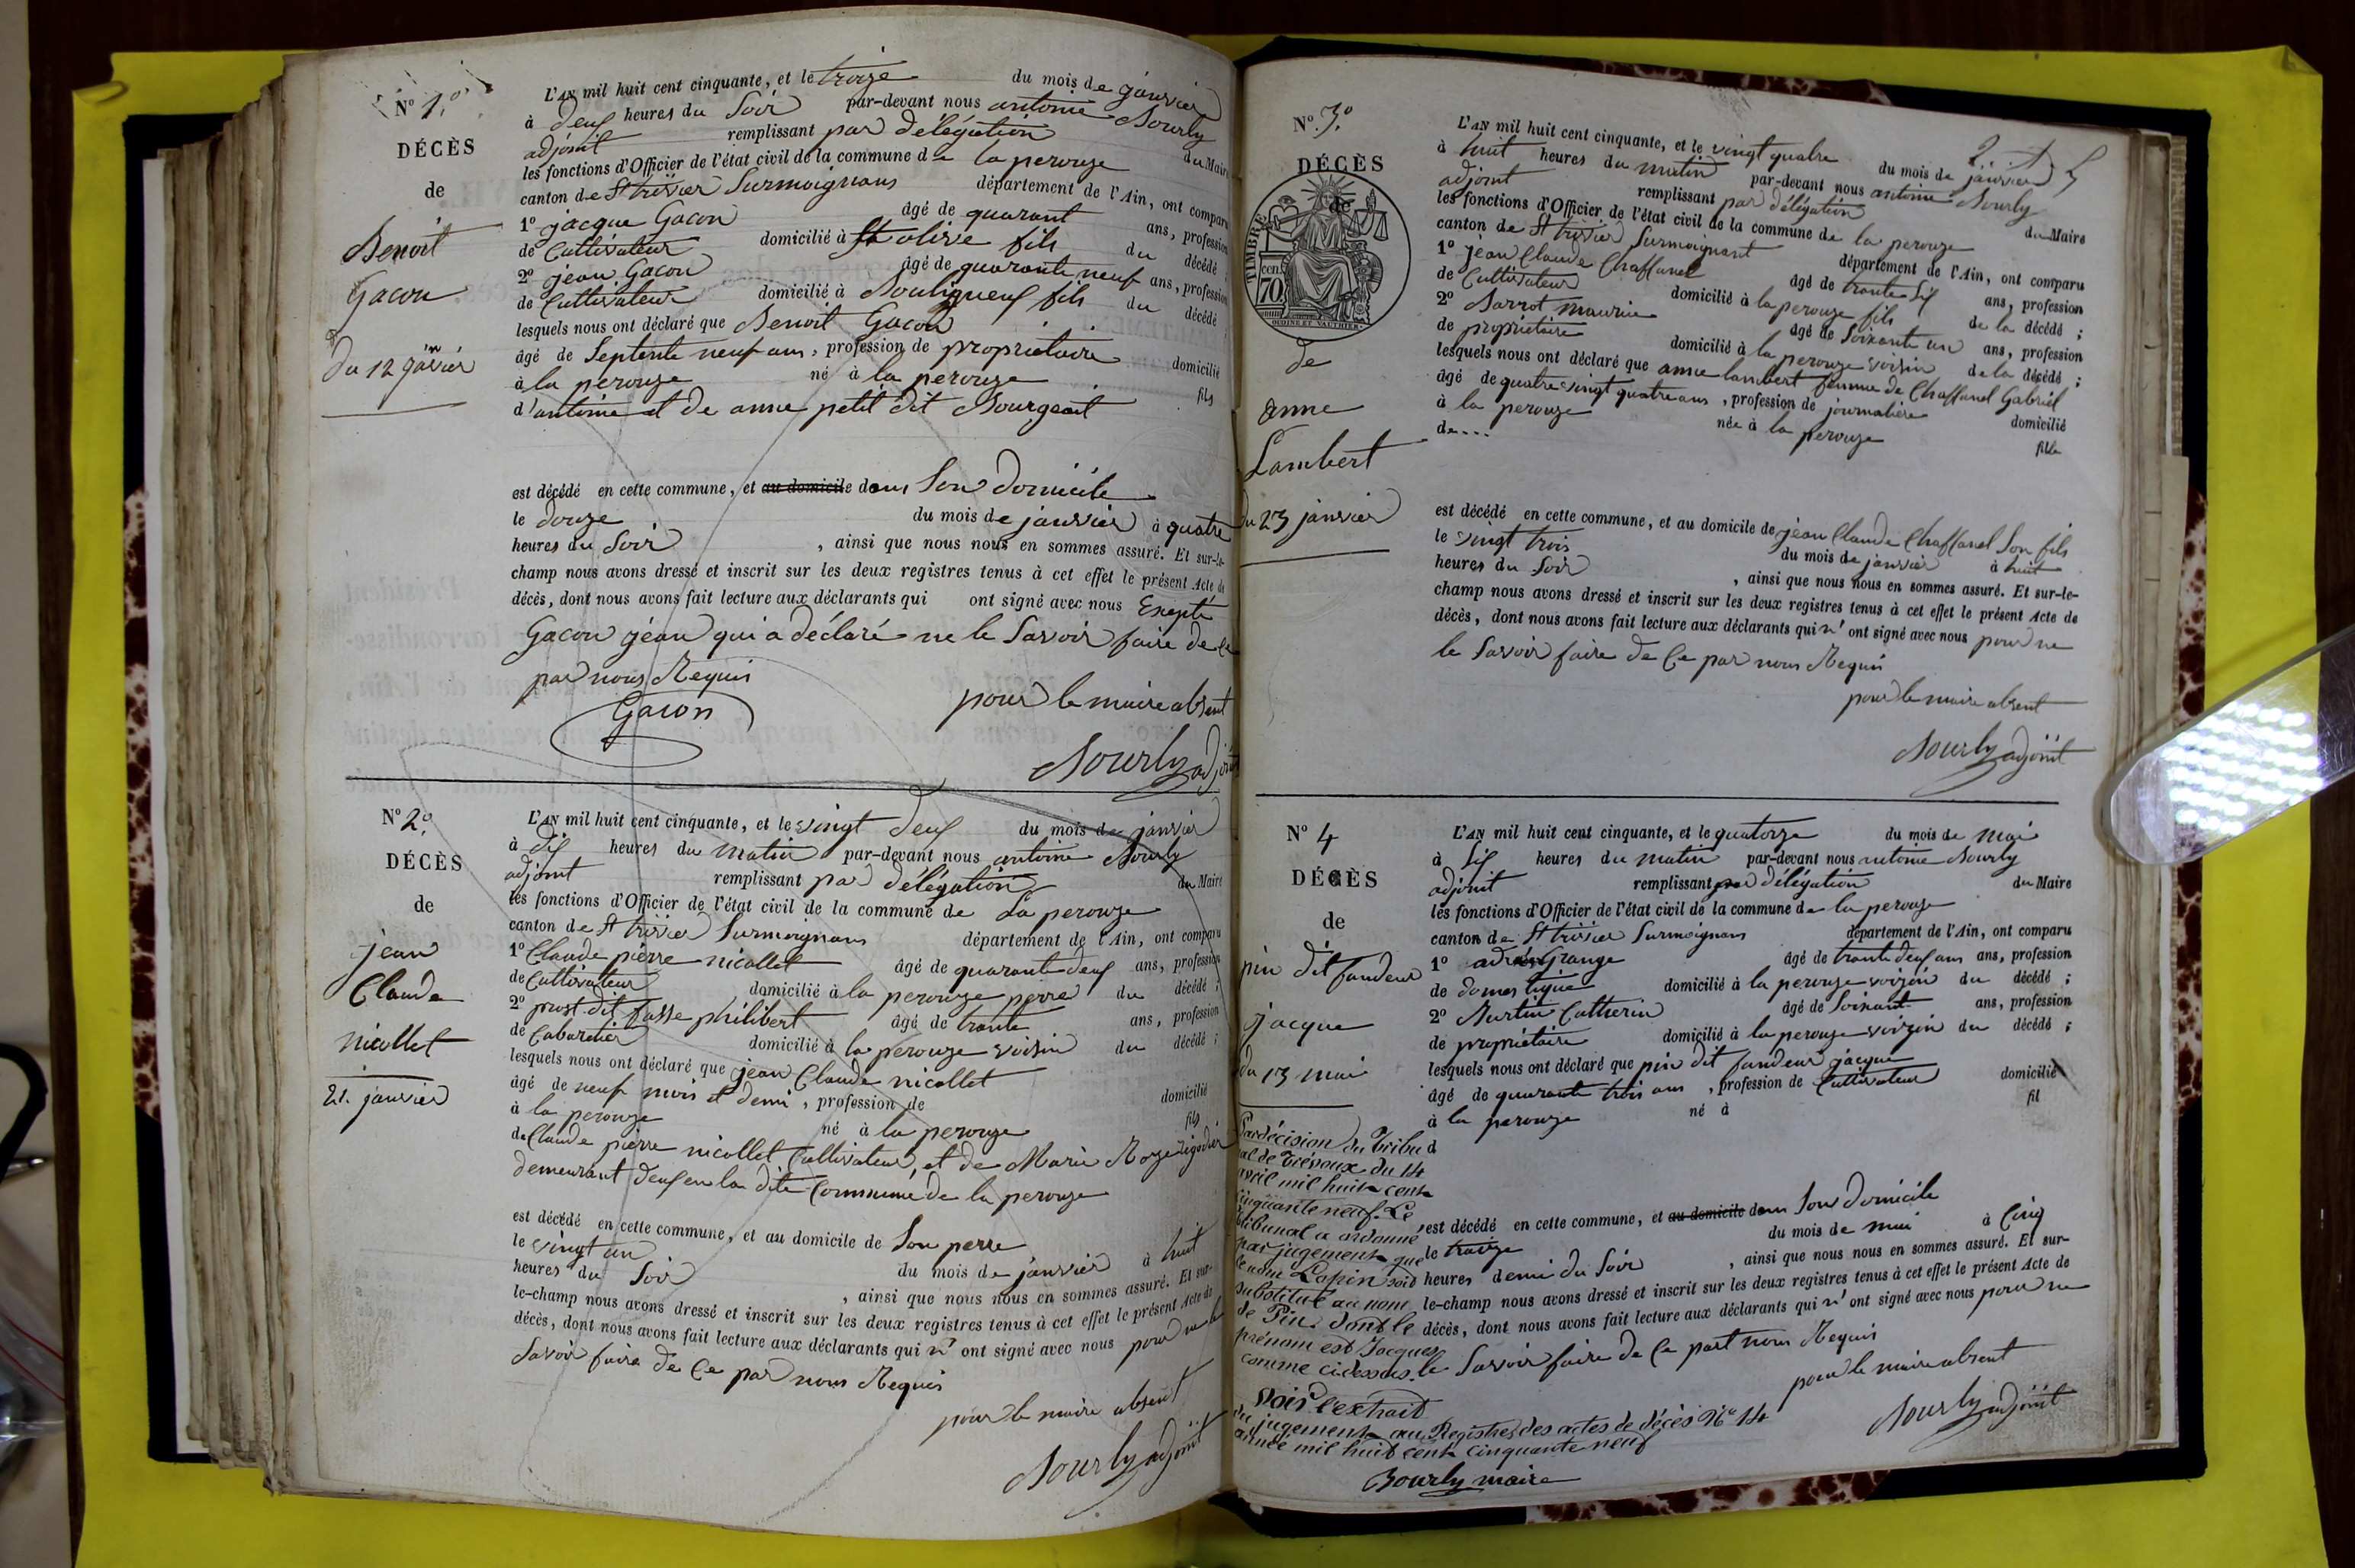 N° 1.°
DÉCÈS
de
Benoit
Gacon
du 12 janvier
L'AN mil huit cent cinquante, et le treize du mois de janvier
à deux heures du soir par-devant nous antoine Bourly
adjoint remplissant par délégation du Maire
les fonctions d'Officier de l'état civil de la commune de la perouze
canton de St trivier Surmoignans département de l'Ain, ont comparu
1° jacque Gacon âgé de quarant ans, profession
de Cultivateur domicilié à St olive fils du décédé ;
2° jean Gacon âgé de quarante neuf ans, profession
de Cultivateur domicilié à Bouligneux fils du décédé
lesquels nous ont déclaré que Benoit Gacon
âgé de Septente neuf ans, profession de propriétaire domicilié
à la perouze né à la perouze fils
d'antoine et de anne petit dit Bourgeat
est décédé en cette commune, et au domicile dans Son Domicile
le douze du mois de janvier à quatre
heures du Soir, ainsi que nous nous en sommes assuré. Et sur-le-
champ nous avons dressé et inscrit sur les deux registres tenus à cet effet le présent Acte de
décès, dont nous avons fait lecture aux déclarants qui ont signé avec nous Exepté
Gacon jean qui a déclaré ne le Savoir faire de ce
par nous Requis
Gacon
pour le maire absent
Bourly adjoint
N° 2.°
DÉCÈS
de
jean
Claude
nicollet
21. janvier
L'AN mil huit cent cinquante, et le vingt deux du mois de janvier
à dix heures du matin par-devant nous antoine Bourly
adjoint remplissant par délégation du Maire
les fonctions d'Officier de l'état civil de la commune de La perouze
canton de St trivier Surmoignans département de l'Ain, ont comparu
1° Claude pierre nicollet âgé de quarante deux ans, profession
de Cultivateur domicilié à la perouze perre du décédé ;
2° prost dit fasse philibert âgé de trante ans, profession
de Cabaretier domicilié à la perouze voisin du décédé ;
lesquels nous ont déclaré que jean Claude nicollet
âgé de neuf mois et demi, profession de domicilié
à la perouze né à la perouze fils
de Claude pierre nicollet Cultivateur, et de Marie Roze
demeurant deux en la dite Commune de la perouze
est décédé en cette commune, et au domicile de Son perre
le vingt un du mois de janvier à huit
heures du Soir, ainsi que nous nous en sommes assuré. Et sur-
le-champ nous avons dressé et inscrit sur les deux registres tenus à cet effet le présent Acte de
décès, dont nous avons fait lecture aux déclarants qui n' ont signé avec nous pour ne le
Savoir faire de Ce par nous Requis
pour le maire absent
Bourly adjoint
N° 3.°
DÉCÈS
de
TIMBRE
cen.
70
OUDINÉ ET VAUTHIER
de
anne
Lambert
du 23 janvier
L'AN mil huit cent cinquante, et le vingt quatre du mois de janvier
à huit heures du matin par-devant nous antoine Bourly
adjoint remplissant par délégation du Maire
les fonctions d'Officier de l'état civil de la commune de la perouze
canton de St trivier Surmoignant département de l'Ain, ont comparu
1° jean Claude Chaffanel âgé de trante Six ans, profession
de Cultivateur domicilié à la perouze fils de la décédé ;
2° Barrot maurice âgé de Soixante un ans, profession
de propriétaire domicilié à la perouze voisin de la décédé ;
lesquels nous ont déclaré que anne lambert femme de Chaffanel Gabriel
âgé de quatre vingt quatre ans, profession de journalière domicilié
à la perouze née à la perouze fille
de...
est décédé en cette commune, et au domicile de jean Claude Chaffanel Son fils
le vingt trois du mois de janvier à huit
heures du Soir, ainsi que nous nous en sommes assuré. Et sur-le-
champ nous avons dressé et inscrit sur les deux registres tenus à cet effet le présent Acte de
décès, dont nous avons fait lecture aux déclarants qui n' ont signé avec nous pour ne
le Savoir faire de Ce par nous Requis
pour le maire absent
Bourly adjoint
N° 4
DÉCÈS
de
pin dit fandeur
jacque
du 13 mai
L'AN mil huit cent cinquante, et le quatorze du mois de mai
à Six heures du matin par-devant nous antoine Bourly
adjoint remplissant par délégation du Maire
les fonctions d'Officier de l'état civil de la commune de la perouze
canton de St trivier Surmoignans département de l'Ain, ont comparu
1° Grange âgé de trante deux ans ans, profession
de domestique domicilié à la perouze voizin du décédé ;
2° Burtin Catherin âgé de Soixant ans, profession
de propriétaire domicilié à la perouze voizin du décédé ;
lesquels nous ont déclaré que pin dit fandeur jacque
âgé de quarante trois ans, profession de Cultivateur domicilié
à la perouze né à fil
d
est décédé en cette commune, et au domicile dans Son domicile
le traize du mois de mai à Cinq
heures demi du Soir, ainsi que nous nous en sommes assuré. Et sur-
le-champ nous avons dressé et inscrit sur les deux registres tenus à cet effet le présent Acte de
décès, dont nous avons fait lecture aux déclarants qui n' ont signé avec nous pour ne
le Savoir faire de Ce part nous Requis
pour le maire absent
Bourly adjoint
Par décision du Tribu
al de Trévoux du 14
avril mil huit cent
cinquante neuf. Le
tribunal a ordonné
par jugement que
le nom Lapin soit
substitué au nom
de Pin dont le
prénom est Jacques
comme ci dessus.
Voir l'extrait
du jugement au Registre des actes de décès N° 14
année mil huit cent cinquante neuf
Bourly maire